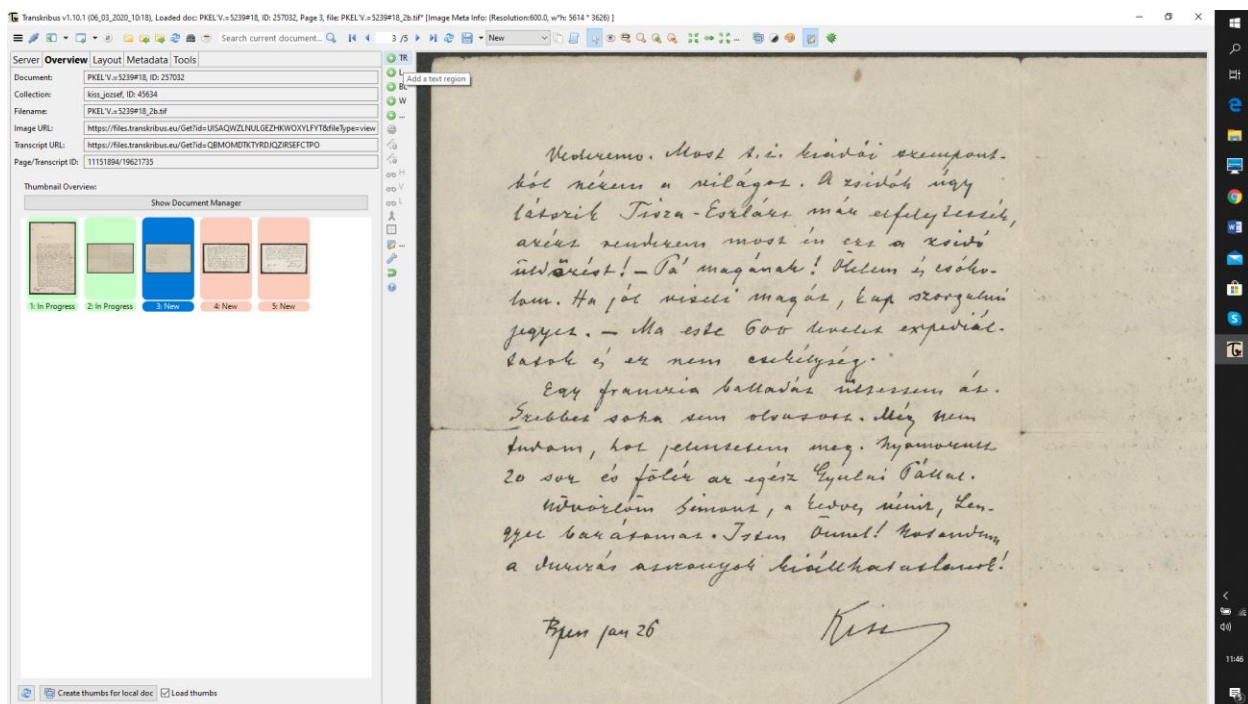 Transkribus v1.10.1 (06_03_2020_10:18), Loaded doc: PKEL'V.=5239#18, ID: 257032, Page 3, file: PKEL'V.=5239#18_2b.tif* [Image Meta Info: (Resolution:600.0, w*h: 5614 * 3626) ]
Search current document...
3 /5
New
Server Overview Layout Metadata Tools
Document: PKEL'V.=5239#18, ID: 257032
Collection: kiss_jozsef, ID: 45634
Filename: PKEL'V.=5239#18_2b.tif
Image URL: https://files.transkribus.eu/Get?id=UISAQWZLNULGEZHKWOXYLFYT&fileType=view
Transcript URL: https://files.transkribus.eu/Get?id=QBMOMDTKTYRDJQZIRSEFCTPO
Page/Transcript ID: 11151894/19621735
Thumbnail Overview:
Show Document Manager
1: In Progress
2: In Progress
3: New
4: New
5: New
Create thumbs for local doc
Load thumbs
TR
L
Add a text region
BL
W
...
H
V
L
...
Vederemo. Most t.i. kiadói szempont-
ból nézem a világot. A zsidók úgy
látszik Tisza-Eszlárt már elfelejtették,
azért rendezem most én ezt a zsidó
üldözést! – Pá magának! Ölelem és csóko-
lom. Ha jól viseli magát, kap szorgalmi
jegyet. – Ma este 600 levelet expediál-
tatok és ez nem csekélység.
Egy franczia balladát ültessem át.
Szebbet soha sem olvasott. Még nem
tudom, hol jelentetem meg. Nyomorult
20 sor és fölér az egész Gyulai Pállal.
Üdvözlöm Simont, a kedves nénit, Len-
gyel barátomat. Isten Önnel!
a durczás asszonyok kiállhatatlanok!
Bpest jan 26
Kiss
11:46